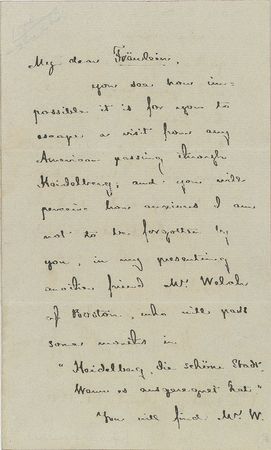 My dear Fräulein,
you see how im-
possible it is for you to
escape a visit from any
American passing through
Heidelberg; and you will
perceive how anxious I am
not to be forgotten by
you, in my presenting
another friend Mr. Welch
of Boston, who will pass
some months in
"Heidelberg, die schöne Stadt
Wenn es ausgeregnet hat."
You will find Mr. W.